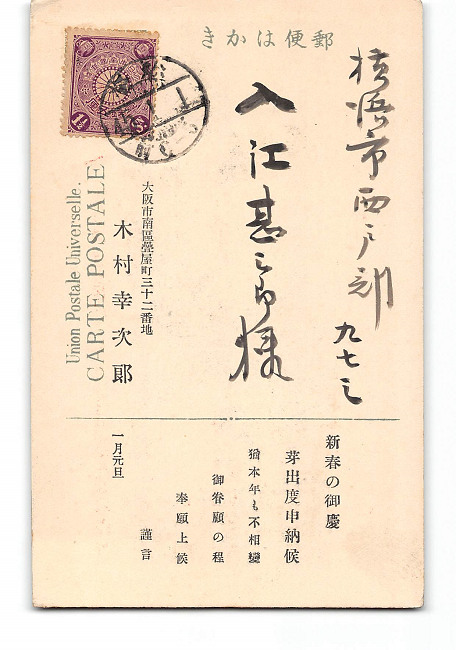 郵便はかき
横浜市西戸部
九七三
入江甚三郎様
大阪市南區疊屋町三十二番地
木村幸次郎
Union Postale Universelle.
CARTE POSTALE
1½ S
新春の御慶
芽出度申納候
猶本年も不相變
御眷顧の程
奉願上候
謹言
一月元旦